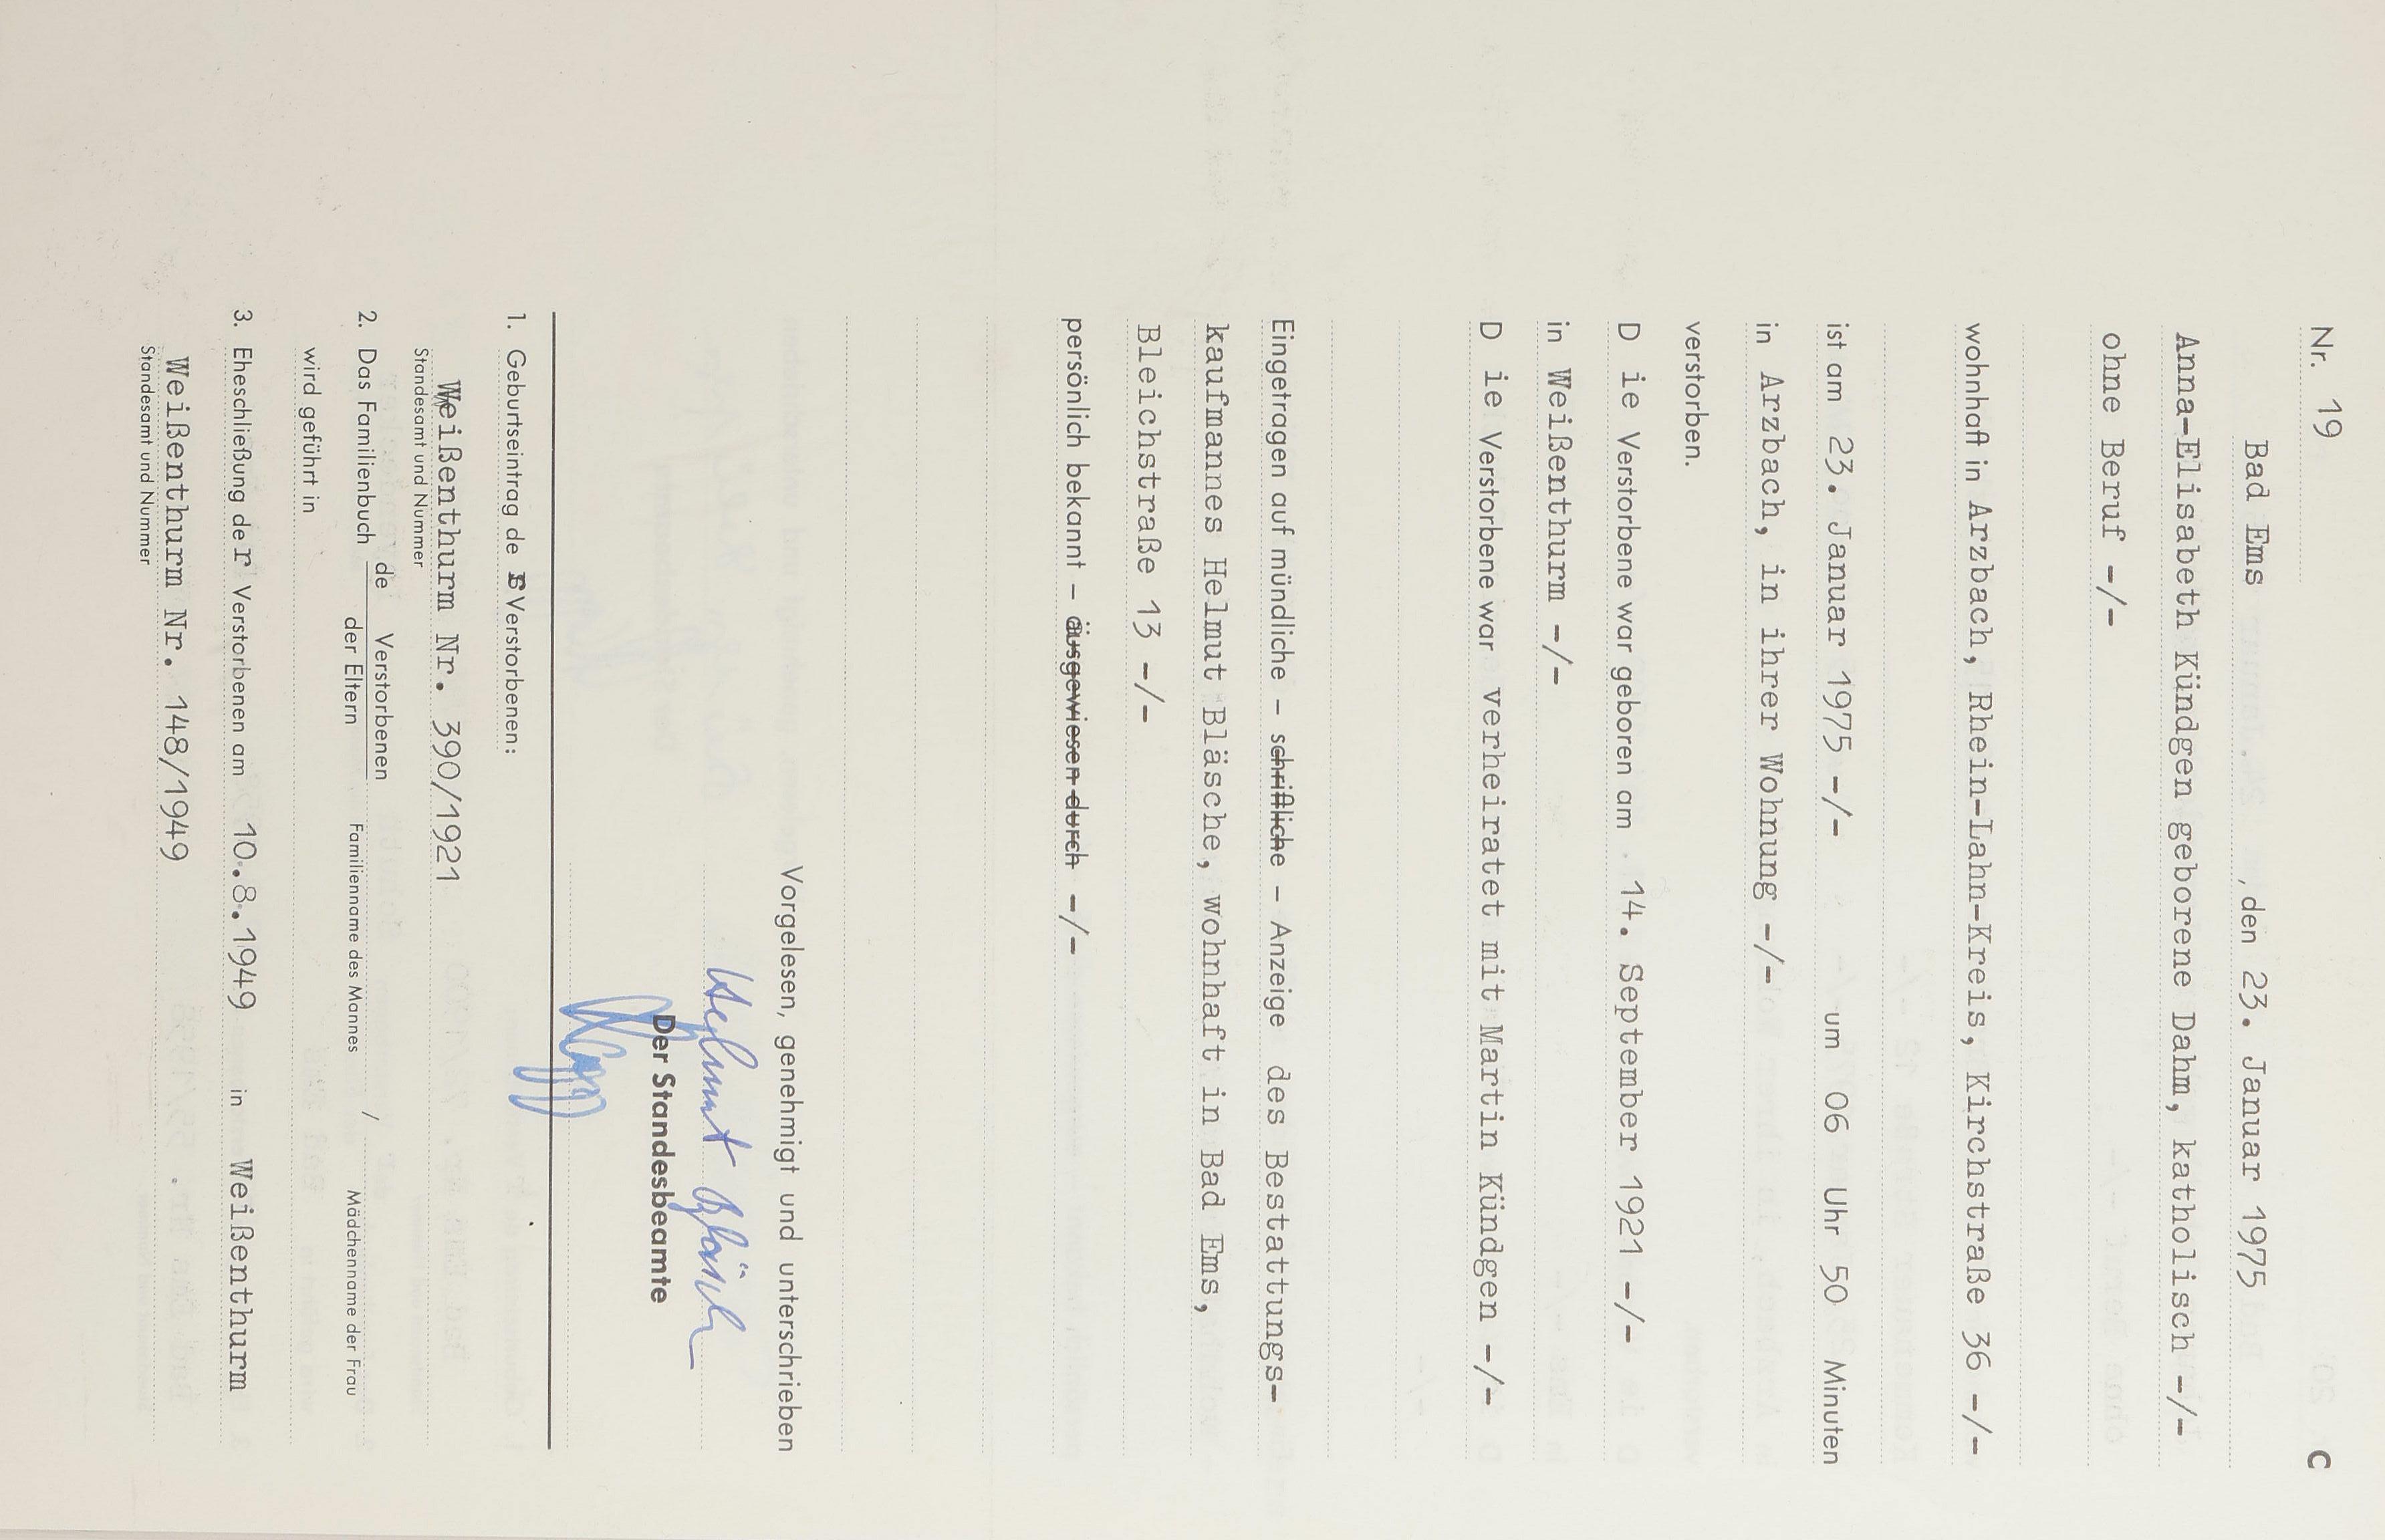 Nr. 19 C
Bad Ems , den 23. Januar 1975
Anna-Elisabeth Kündgen geborene Dahm, katholisch -/-
ohne Beruf -/-
wohnhaft in Arzbach, Rhein-Lahn-Kreis, Kirchstraße 36 -/-
ist am 23. Januar 1975 -/- um 06 Uhr 50 Minuten
in Arzbach, in ihrer Wohnung -/-
verstorben.
D ie Verstorbene war geboren am 14. September 1921 -/-
in Weißenthurm -/-
D ie Verstorbene war verheiratet mit Martin Kündgen -/-
Eingetragen auf mündliche – schriftliche – Anzeige des Bestattungs-
kaufmannes Helmut Bläsche, wohnhaft in Bad Ems,
Bleichstraße 13 -/-
persönlich bekannt – ausgewiesen durch -/-
Vorgelesen, genehmigt und unterschrieben
Helmut Bläsche
Der Standesbeamte
1. Geburtseintrag de r Verstorbenen:
Weißenthurm Nr. 390/1921
Standesamt und Nummer
2. Das Familienbuch de Verstorbenen / der Eltern
Familienname des Mannes Mädchenname der Frau
wird geführt in
3. Eheschließung der Verstorbenen am 10.8.1949 in Weißenthurm
Weißenthurm Nr. 148/1949
Standesamt und Nummer